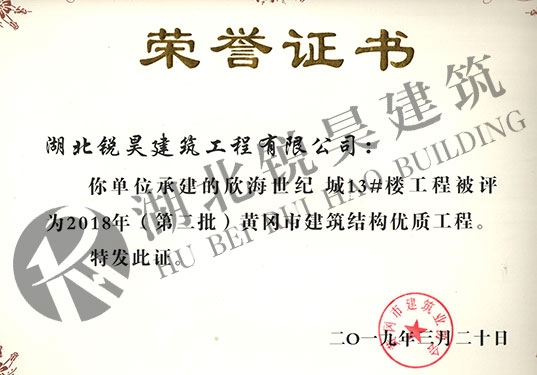 荣誉证书
湖北锐昊建筑工程有限公司：
你单位承建的欣海世纪 城13#楼工程被评
为2018年（第二批）黄冈市建筑结构优质工程。
特发此证。
黄冈市建筑业协会
二〇一九年三月二十日
湖北锐昊建筑
HU BEI RUI HAO BUILDING